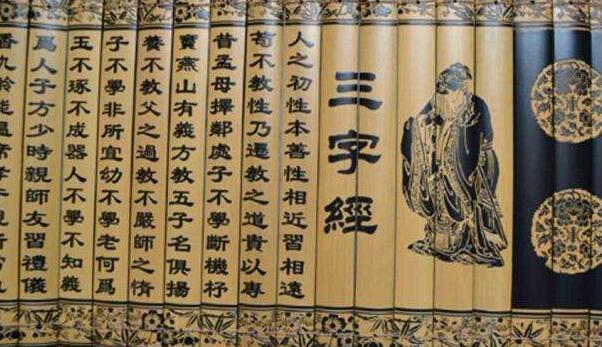 三字經
人之初性本善性相近習相遠
苟不教性乃遷教之道貴以專
昔孟母擇鄰處子不學斷機杼
竇燕山有義方教五子名俱揚
養不教父之過教不嚴師之惰
子不學非所宜幼不學老何爲
玉不琢不成器人不學不知義
爲人子方少時親師友習禮儀
香九齡能溫席孝于親所當